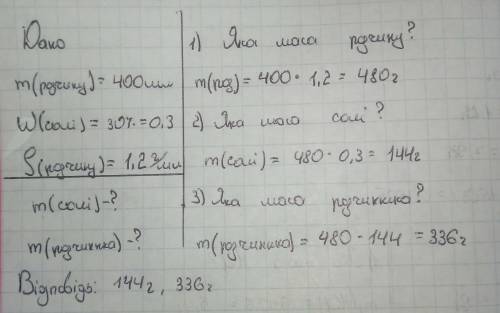 Дано
m(розчину) = 400мл
W(солі) = 30% = 0,3
ρ(розчину) = 1,2г/мл
m(солі) - ?
m(розчинника) - ?
1) Яка маса розчину?
m(роз) = 400 · 1,2 = 480г
2) Яка маса солі?
m(солі) = 480 · 0,3 = 144г
3) Яка маса розчинника?
m(розчинника) = 480 - 144 = 336г
Відповідь: 144г, 336г